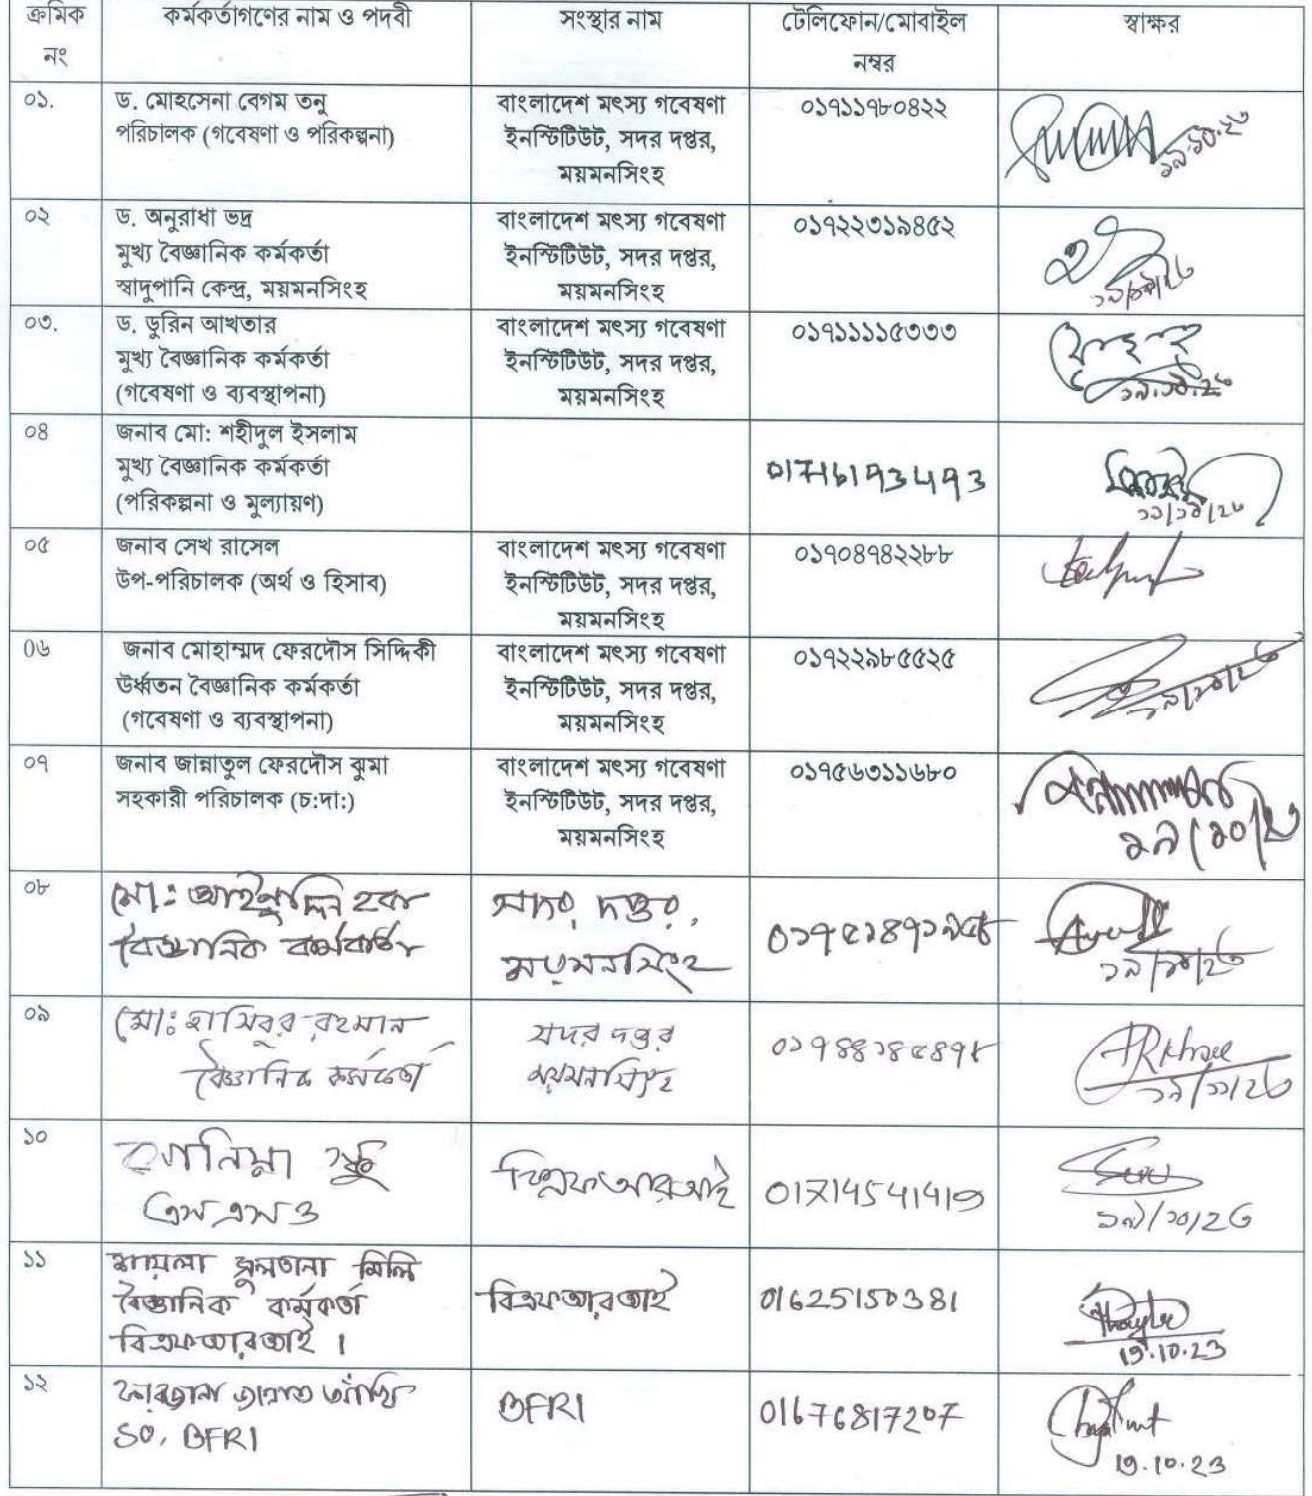 ক্রমিক নং
কর্মকর্তাগণের নাম ও পদবী
সংস্থার নাম
টেলিফোন/মোবাইল নম্বর
স্বাক্ষর
০১.
ড. মোহসেনা বেগম তনু
পরিচালক (গবেষণা ও পরিকল্পনা)
বাংলাদেশ মৎস্য গবেষণা
ইনস্টিটিউট, সদর দপ্তর,
ময়মনসিংহ
০১৭১১৭৮০৪২২
১৯.১০.২৩
০২
ড. অনুরাধা ভদ্র
মুখ্য বৈজ্ঞানিক কর্মকর্তা
স্বাদুপানি কেন্দ্র, ময়মনসিংহ
বাংলাদেশ মৎস্য গবেষণা
ইনস্টিটিউট, সদর দপ্তর,
ময়মনসিংহ
০১৭২২৩১৯৪৫২
০৩.
ড. ডুরিন আখতার
মুখ্য বৈজ্ঞানিক কর্মকর্তা
(গবেষণা ও ব্যবস্থাপনা)
বাংলাদেশ মৎস্য গবেষণা
ইনস্টিটিউট, সদর দপ্তর,
ময়মনসিংহ
০১৭১১১১৫৩৩৩
১৯.১০.২৩
০৪
জনাব মো: শহীদুল ইসলাম
মুখ্য বৈজ্ঞানিক কর্মকর্তা
(পরিকল্পনা ও মুল্যায়ণ)
01716193493
০৫
জনাব সেখ রাসেল
উপ-পরিচালক (অর্থ ও হিসাব)
বাংলাদেশ মৎস্য গবেষণা
ইনস্টিটিউট, সদর দপ্তর,
ময়মনসিংহ
০১৭০৪৭৪২২৮৮
০৬
জনাব মোহাম্মদ ফেরদৌস সিদ্দিকী
উর্ধ্বতন বৈজ্ঞানিক কর্মকর্তা
(গবেষণা ও ব্যবস্থাপনা)
বাংলাদেশ মৎস্য গবেষণা
ইনস্টিটিউট, সদর দপ্তর,
ময়মনসিংহ
০১৭২২৯৮৫৫২৫
১৯/১০/২৩
০৭
জনাব জান্নাতুল ফেরদৌস ঝুমা
সহকারী পরিচালক (চ:দা:)
বাংলাদেশ মৎস্য গবেষণা
ইনস্টিটিউট, সদর দপ্তর,
ময়মনসিংহ
০১৭৫৬৩১১৬৮০
১৯/১০/২৩
০৮
মো: আইনুদ্দিন হক
বৈজ্ঞানিক কর্মকর্তা
সদর দপ্তর,
ময়মনসিংহ
১৯/১০/২৩
০৯
মো: হাসিবুর রহমান
বৈজ্ঞানিক কর্মকর্তা
সদর দপ্তর
ময়মনসিংহ
১০
এসএসও
বিএফআরআই
01714541419
১৯/১০/২৩
১১
শায়লা সুলতানা মিলি
বৈজ্ঞানিক কর্মকর্তা
বিএফআরআই ।
বিএফআরআই
01625150381
19.10.23
১২
ফারজানা জান্নাত আঁখি
SO, BFRI
BFRI
01676817207
19.10.23